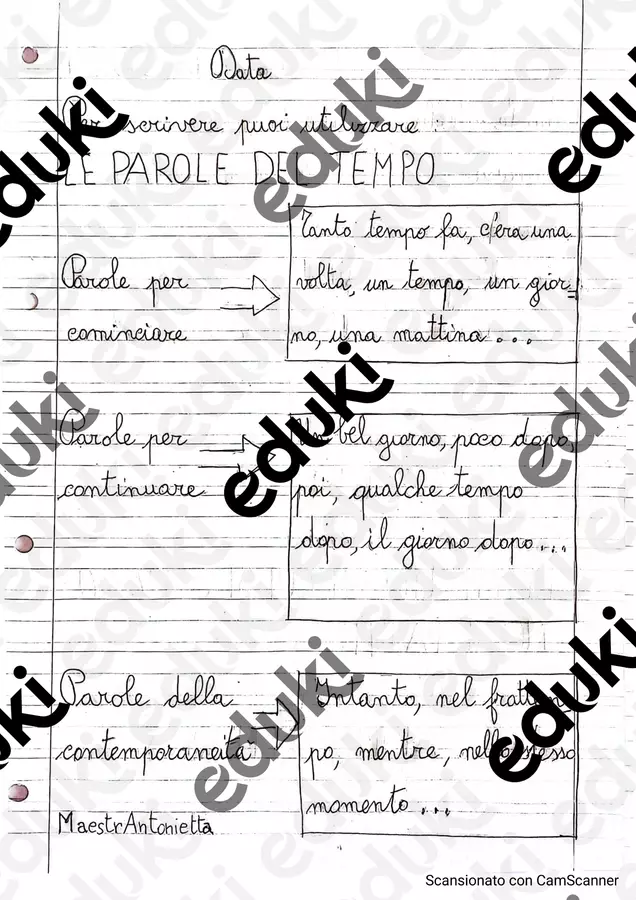 Data
Per scrivere puoi utilizzare :
LE PAROLE DEL TEMPO
Parole per
cominciare
Tanto tempo fa, c'era una
volta, un tempo, un gior=
no, una mattina ...
Parole per
continuare
Un bel giorno, poco dopo
poi, qualche tempo
dopo, il giorno dopo...
Parole della
contemporaneità
Intanto, nel frattem
po, mentre, nello stesso
momento ...
MaestrAntonietta
eduki
eduki
eduki
eduki
eduki
eduki
eduki
eduki
eduki
Scansionato con CamScanner